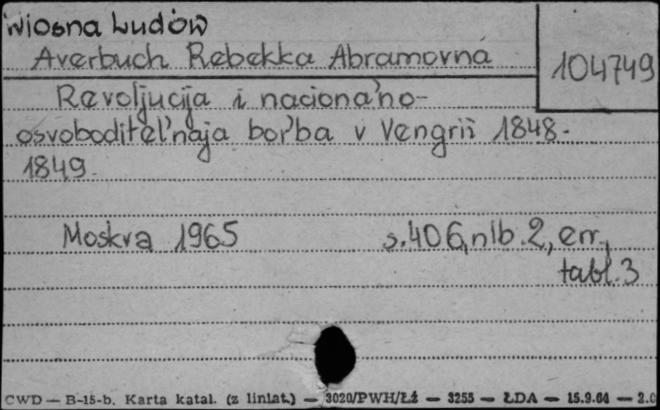 Wiosna Ludów
Averbuch Rebekka Abramovna
104749
Revoljucija i naciona'no-
osvoboditel'naja bor'ba v Vengrii 1848-
1849.
Moskva 1965 s.406,nlb.2, err.,
tabl.3
CWD — B-15-b. Karta katal. (z liniat.) — 3020/PWH/Łź — 3255 — ŁDA — 15.9.64 — 2.0